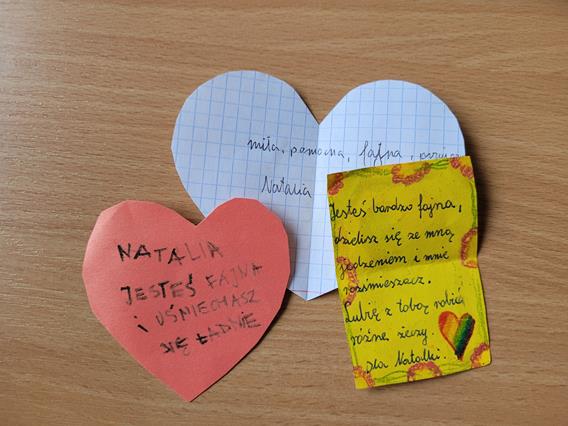 miła, pomocna, fajna,
Natalia
NATALIA
JESTEŚ FAJNA
i UŚMIECHASZ
SIĘ ŁADNIE
Jesteś bardzo fajna,
dzielisz się ze mną
jedzeniem i mnie
rozśmieszasz.
Lubię z tobą robić
różne rzeczy.
dla Natalki.